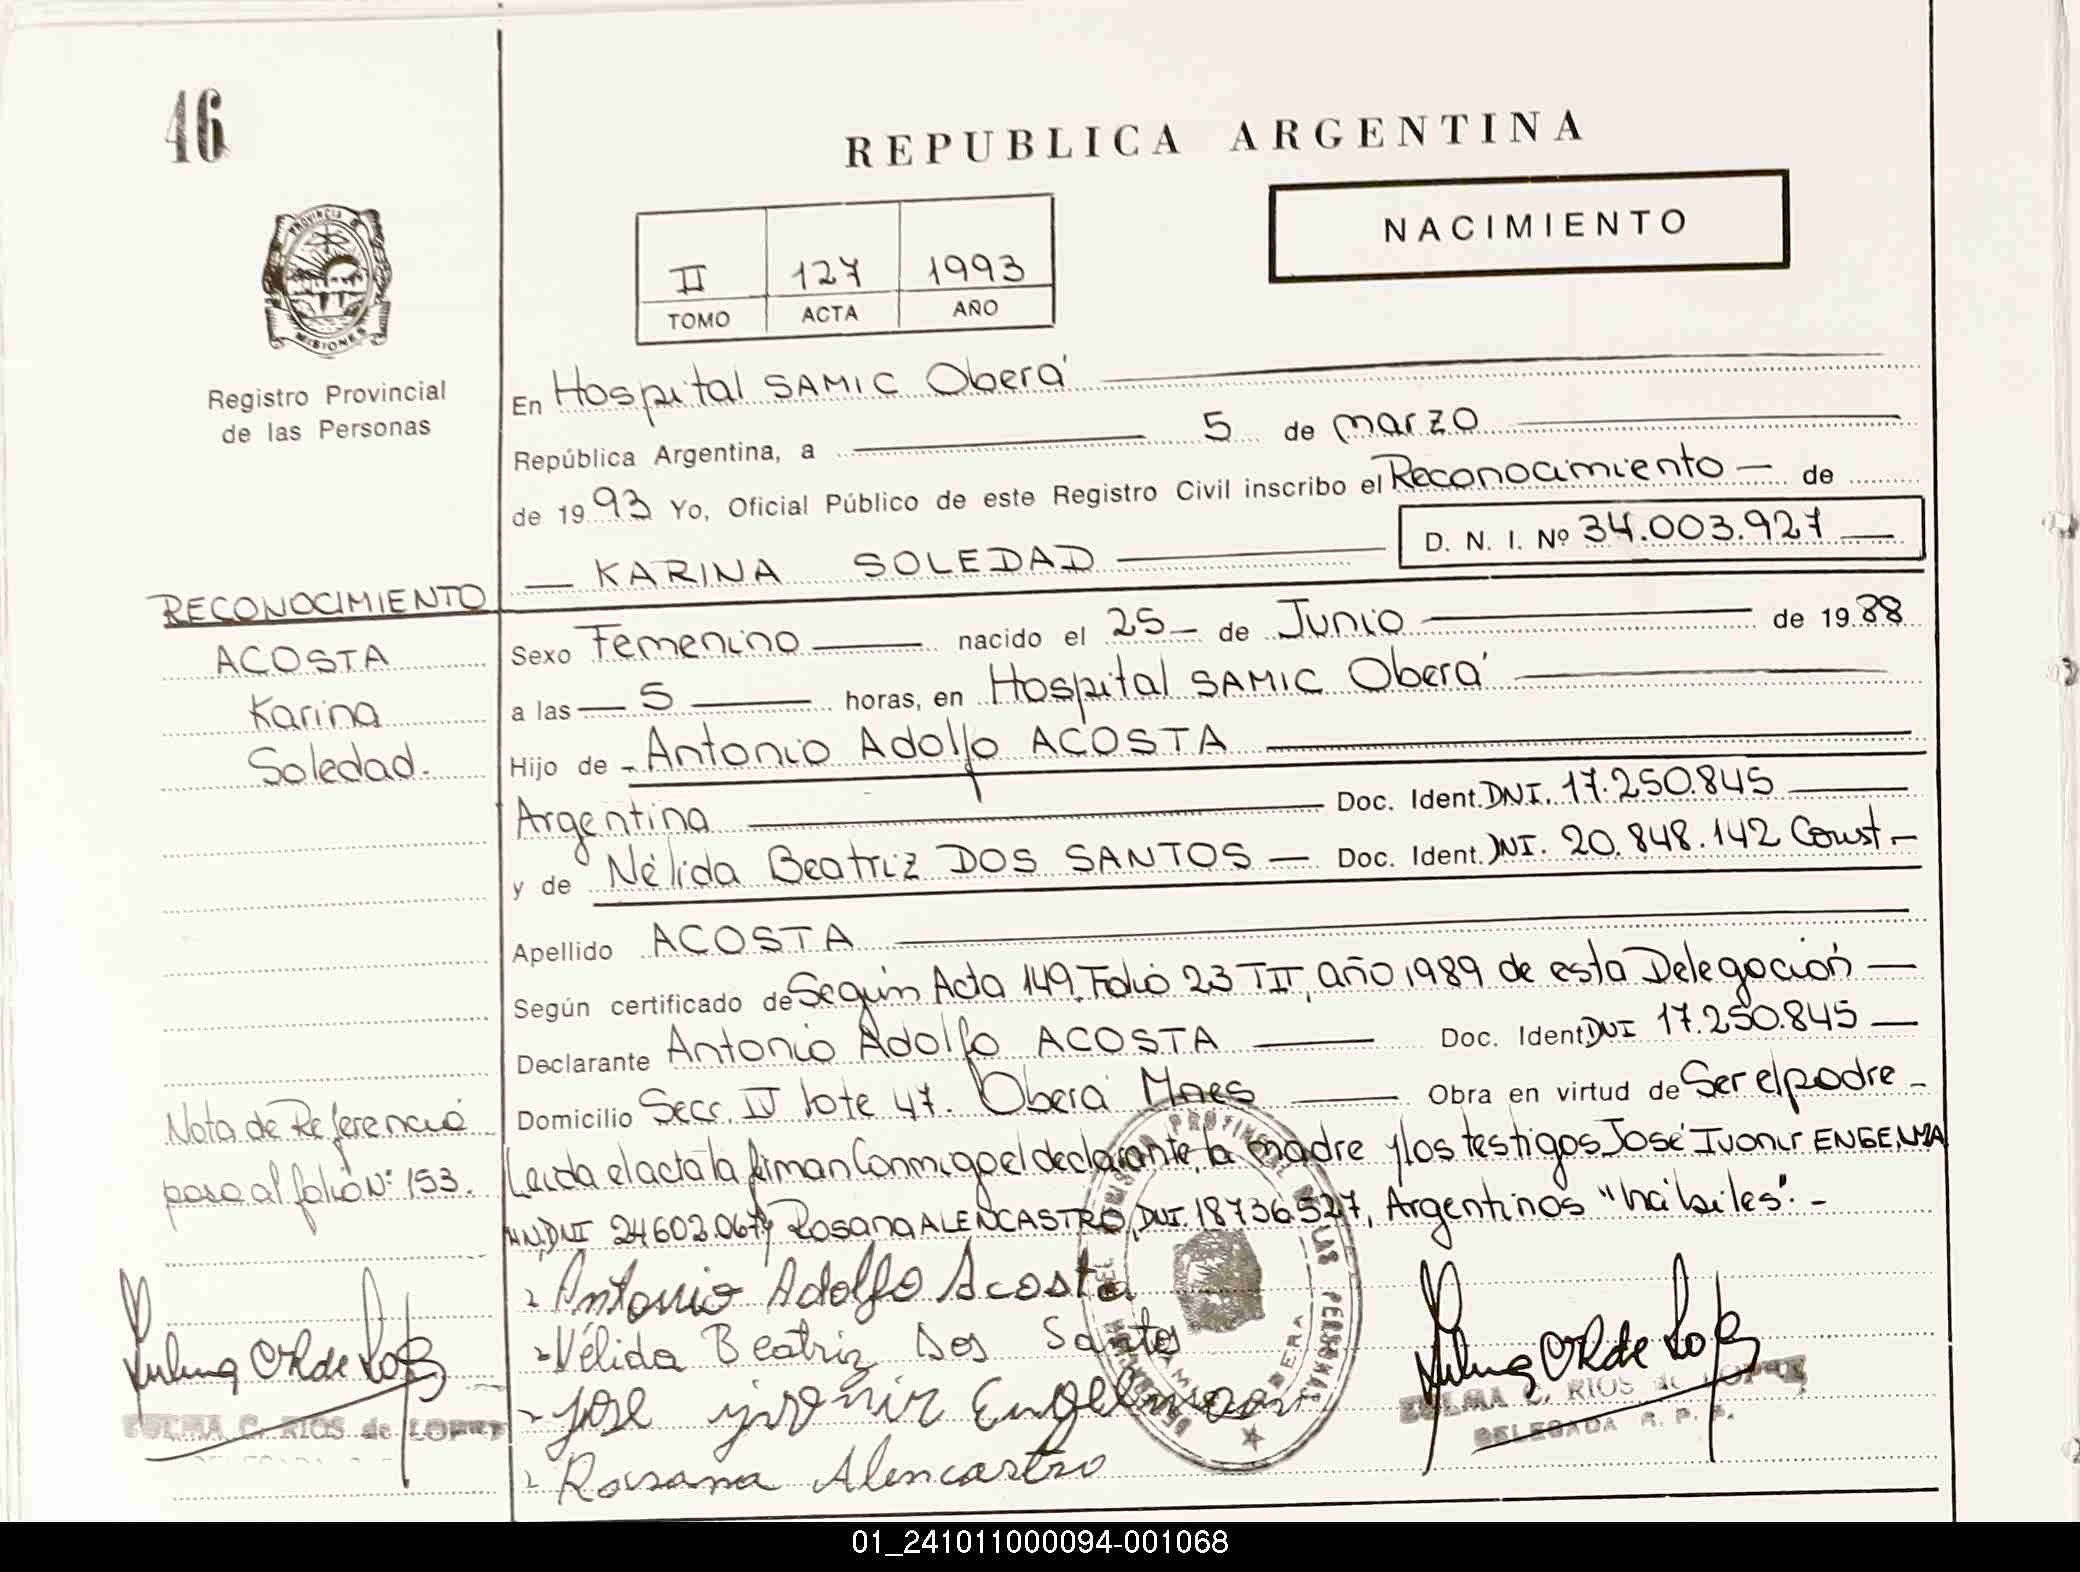 46
REPUBLICA ARGENTINA
NACIMIENTO
II 127 1993
TOMO ACTA AÑO
PROVINCIA DE
MISIONES
Registro Provincial
de las Personas
En Hospital SAMIC Oberá
República Argentina, a 5 de marzo
de 1993 Yo, Oficial Público de este Registro Civil inscribo el Reconocimiento — de
— KARINA SOLEDAD — D. N. I. Nº 34.003.927 —
RECONOCIMIENTO
ACOSTA
Karina
Soledad.
Sexo Femenino — nacido el 25 — de Junio — de 1988
a las — 5 — horas, en Hospital SAMIC Oberá —
Hijo de - Antonio Adolfo ACOSTA
Argentina — Doc. Ident. DNI. 17.250.845 —
y de Nélida Beatriz DOS SANTOS — Doc. Ident. DNI. 20.848.142 Const -
Apellido ACOSTA —
Según certificado de Según Acta 149. Folio 23 T II, año 1989 de esta Delegación —
Declarante Antonio Adolfo ACOSTA — Doc. Ident DNI 17.250.845 —
Domicilio Secc. IV lote 47. Oberá Mnes — Obra en virtud de Ser el padre -
Nota de Referencia
pasa al folio Nº 153.
Leída el acta la firman Conmigo el declarante, la madre y los testigos José Ivonir ENGELMA
NN, DNI 24602.067 y Rosana ALENCASTRO, DNI. 18736.527, Argentinos "hábiles". -
Antonio Adolfo Acosta
Nélida Beatriz Dos Santos
José Ivonir Engelmann
Rosana Alencastro
ZULMA C. RIOS de LOPEZ
ZULMA C. RIOS de LOPEZ
DELEGADA R. P. P.
REGISTRO PROVINCIAL DE LAS PERSONAS
OBERA
01_241011000094-001068